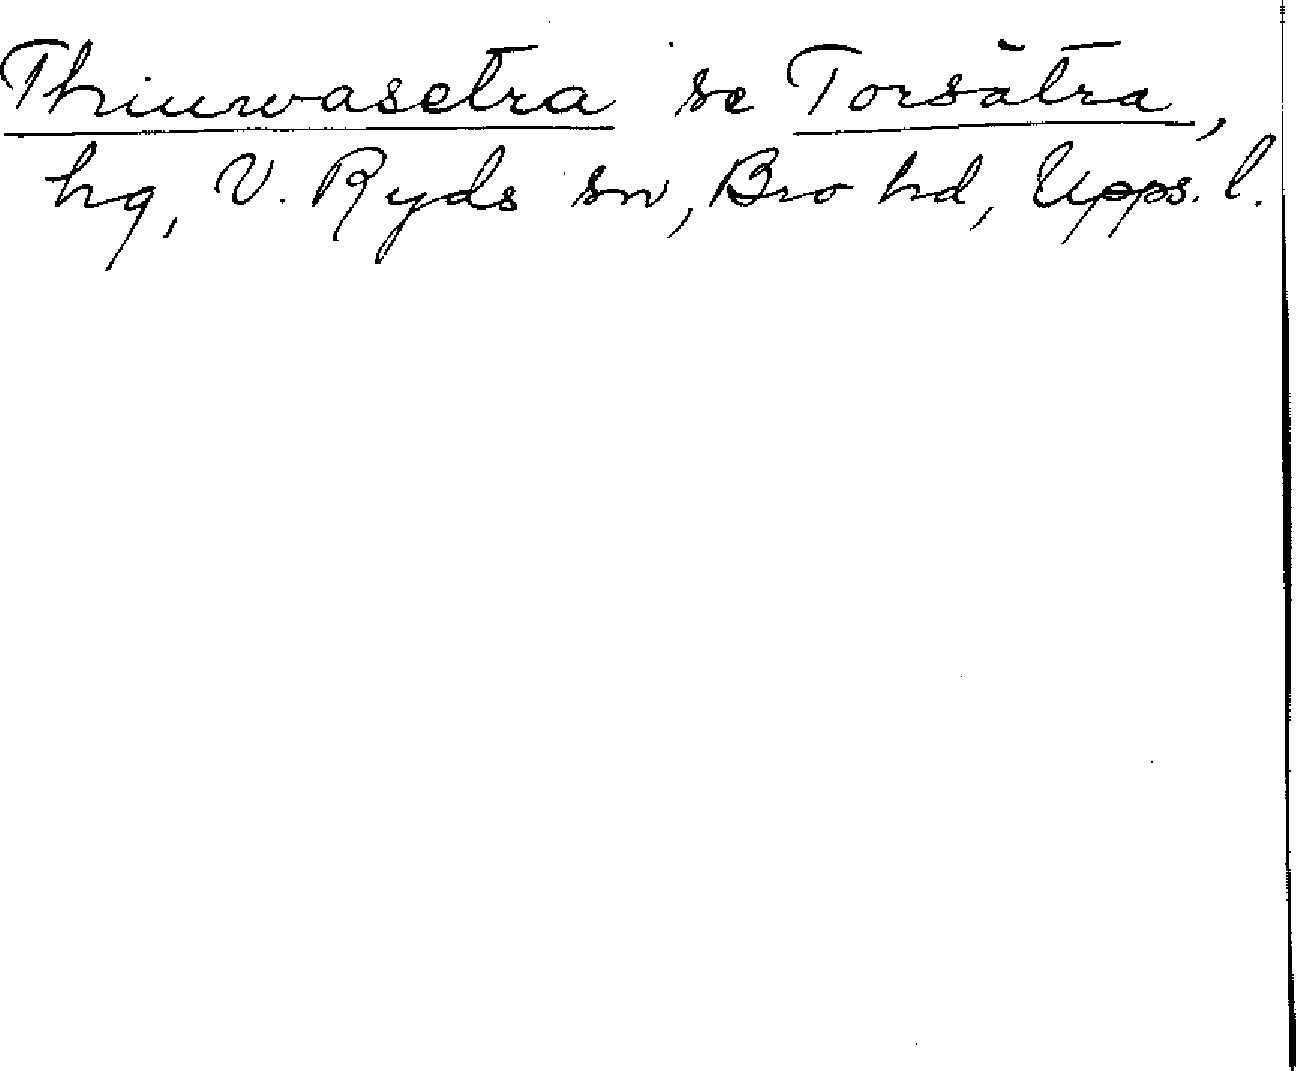 Thiurwasetra se Torsätra,
hg, V. Ryds sn, Bro hd, Upps. l.